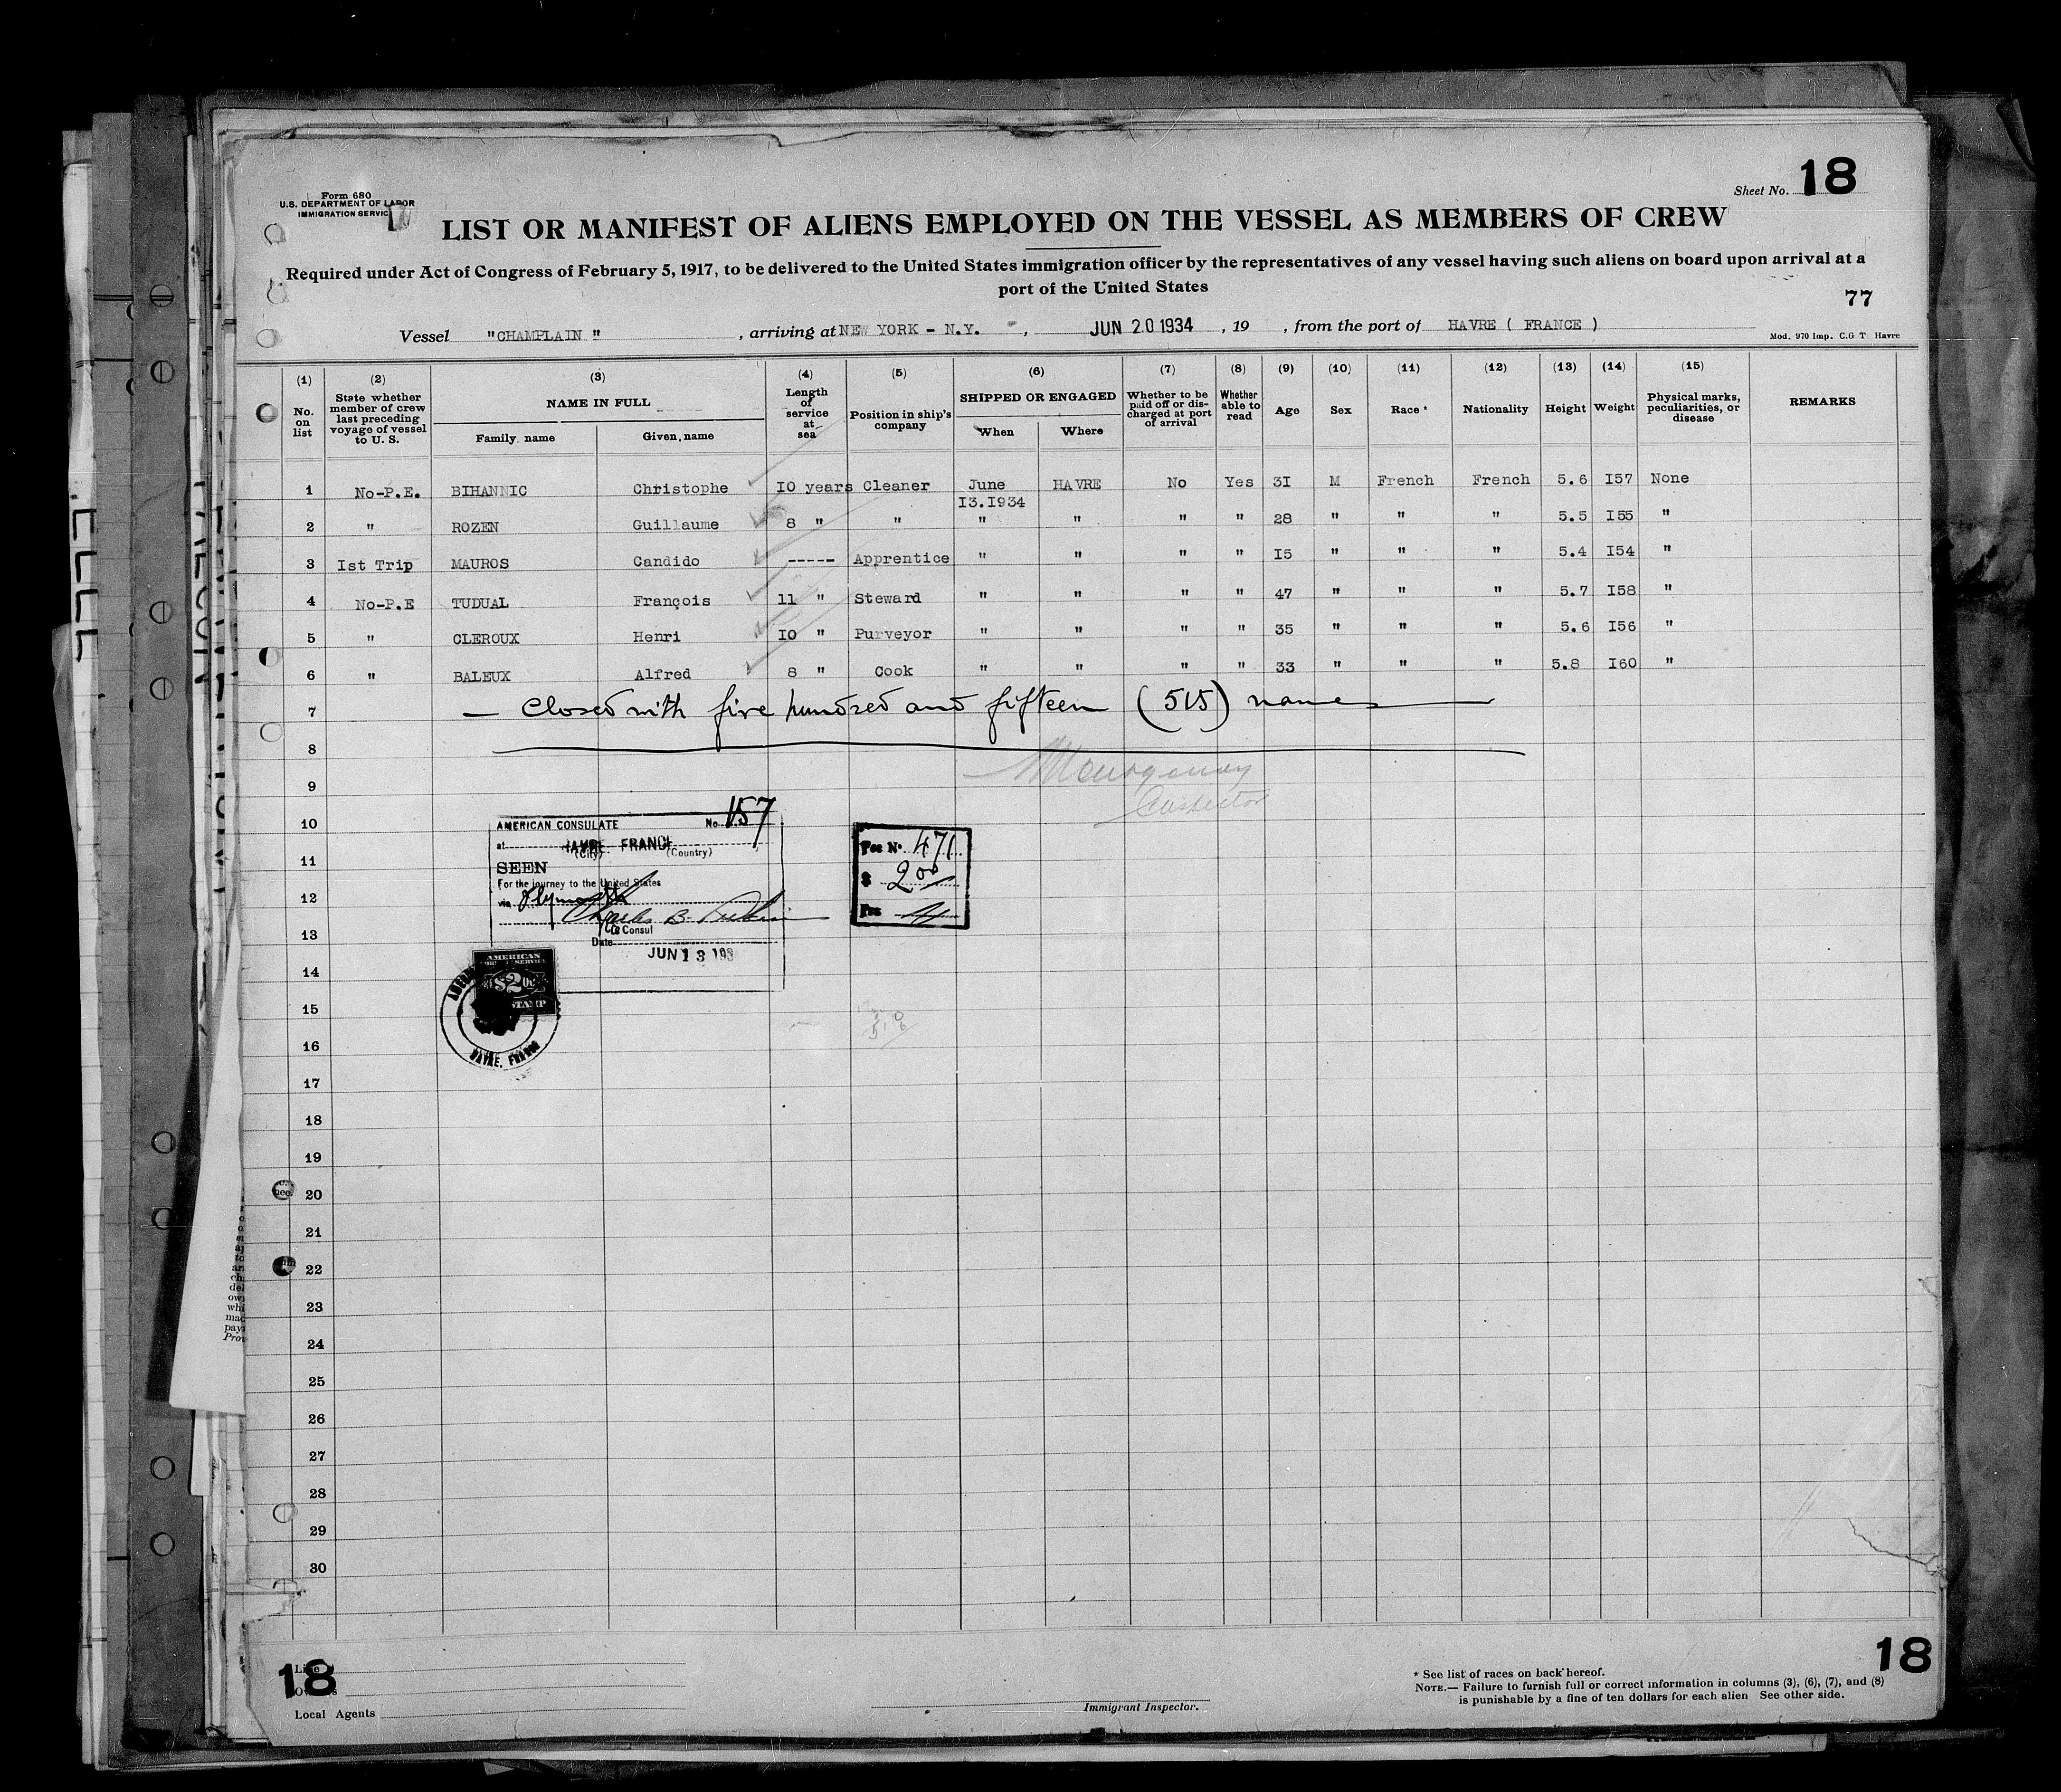 Form 680
U.S. DEPARTMENT OF LABOR
IMMIGRATION SERVICE
Sheet No. 18
LIST OR MANIFEST OF ALIENS EMPLOYED ON THE VESSEL AS MEMBERS OF CREW
Required under Act of Congress of February 5, 1917, to be delivered to the United States immigration officer by the representatives of any vessel having such aliens on board upon arrival at a
port of the United States
77
Vessel "CHAMPLAIN", arriving at NEW YORK - N.Y., JUN 20 1934, 19 , from the port of HAVRE ( FRANCE )
Mod. 970 Imp. C.G T Havre
(1) (2) (3) (4) (5) (6) (7) (8) (9) (10) (11) (12) (13) (14) (15)
No. on list
State whether member of crew last preceding voyage of vessel to U. S.
NAME IN FULL
Family name
Given name
Length of service at sea
Position in ship's company
SHIPPED OR ENGAGED
When
Where
Whether to be paid off or discharged at port of arrival
Whether able to read
Age
Sex
Race *
Nationality
Height
Weight
Physical marks, peculiarities, or disease
REMARKS
1 No-P.E. BIHANNIC Christophe 10 years Cleaner June 13.1934 HAVRE No Yes 31 M French French 5.6 157 None
2 " ROZEN Guillaume 8 " " " " " " 28 " " " 5.5 155 "
3 Ist Trip MAUROS Candido ----- Apprentice " " " " 15 " " " 5.4 154 "
4 No-P.E TUDUAL François 11 " Steward " " " " 47 " " " 5.7 158 "
5 " CLEROUX Henri 10 " Purveyor " " " " 35 " " " 5.6 156 "
6 " BALEUX Alfred 8 " Cook " " " " 33 " " " 5.8 160 "
7 — Closed with five hundred and fifteen (515) names
8
9
Inspector
10
11
12
13
14
15
16
17
18
19
20
21
22
23
24
25
26
27
28
29
30
AMERICAN CONSULATE No. 157
at HAVRE FRANCE
(City) (Country)
SEEN
For the journey to the United States
via Plymouth
Charles B.
Consul
Date JUN 13 193
Fee No. 471
$ 2.00
AMERICAN
SERVICE
$2.00
STAMP
HAVRE, FRANCE
18
18
Line
Owners
Local Agents
Immigrant Inspector.
* See list of races on back hereof.
NOTE.— Failure to furnish full or correct information in columns (3), (6), (7), and (8)
is punishable by a fine of ten dollars for each alien See other side.